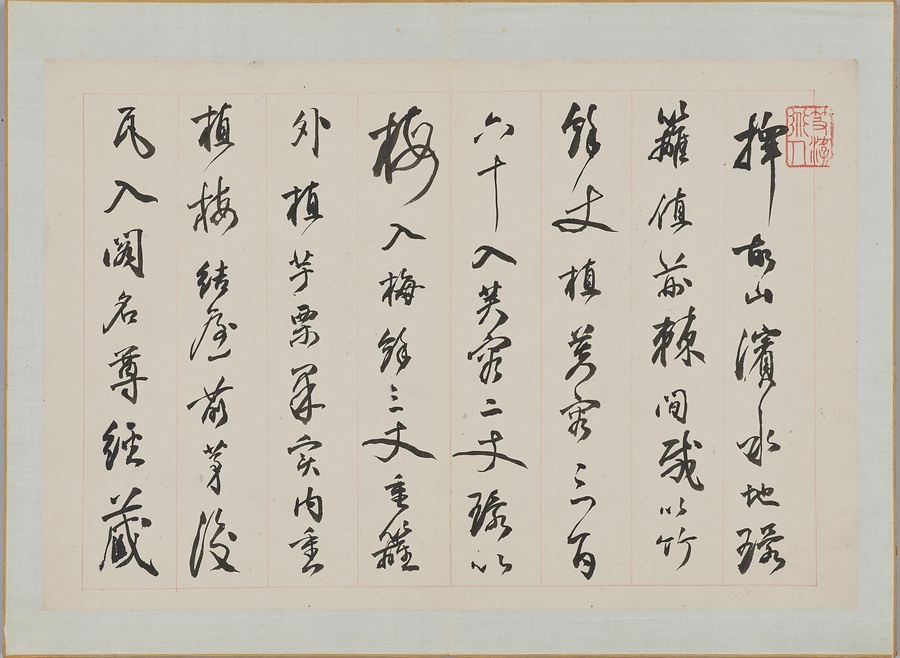 擇故山濱水地環
籬值荊棘間栽以竹
餘丈植芙容三百
六十入芙容二丈環以
梅入梅餘三丈重籬
外植芋栗果实内重
植梅結屋前茅後
瓦入閣名尊經藏